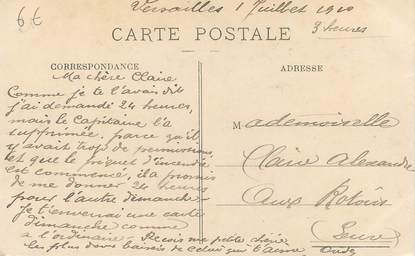 6€
Versailles 1 Juillet 1910
3 heures
CARTE POSTALE
CORRESPONDANCE
Ma chère Claire
Comme je te l'avais dit
j'ai demandé 24 heures,
mais le Capitaine l'a
supprimée. parce qu'il
y avait trop de permissions,
et que le piquet d'incendie
est commencé, il a promis
de me donner 24 heures
pour l'autre dimanche -
Je t'enverrai une carte
dimanche comme
à l'ordinaire - Reçois ma petite chérie
les plus doux baisers de celui qui t'aime
ADRESSE
Mademoiselle
Claire Alexandre
Aux
Eure